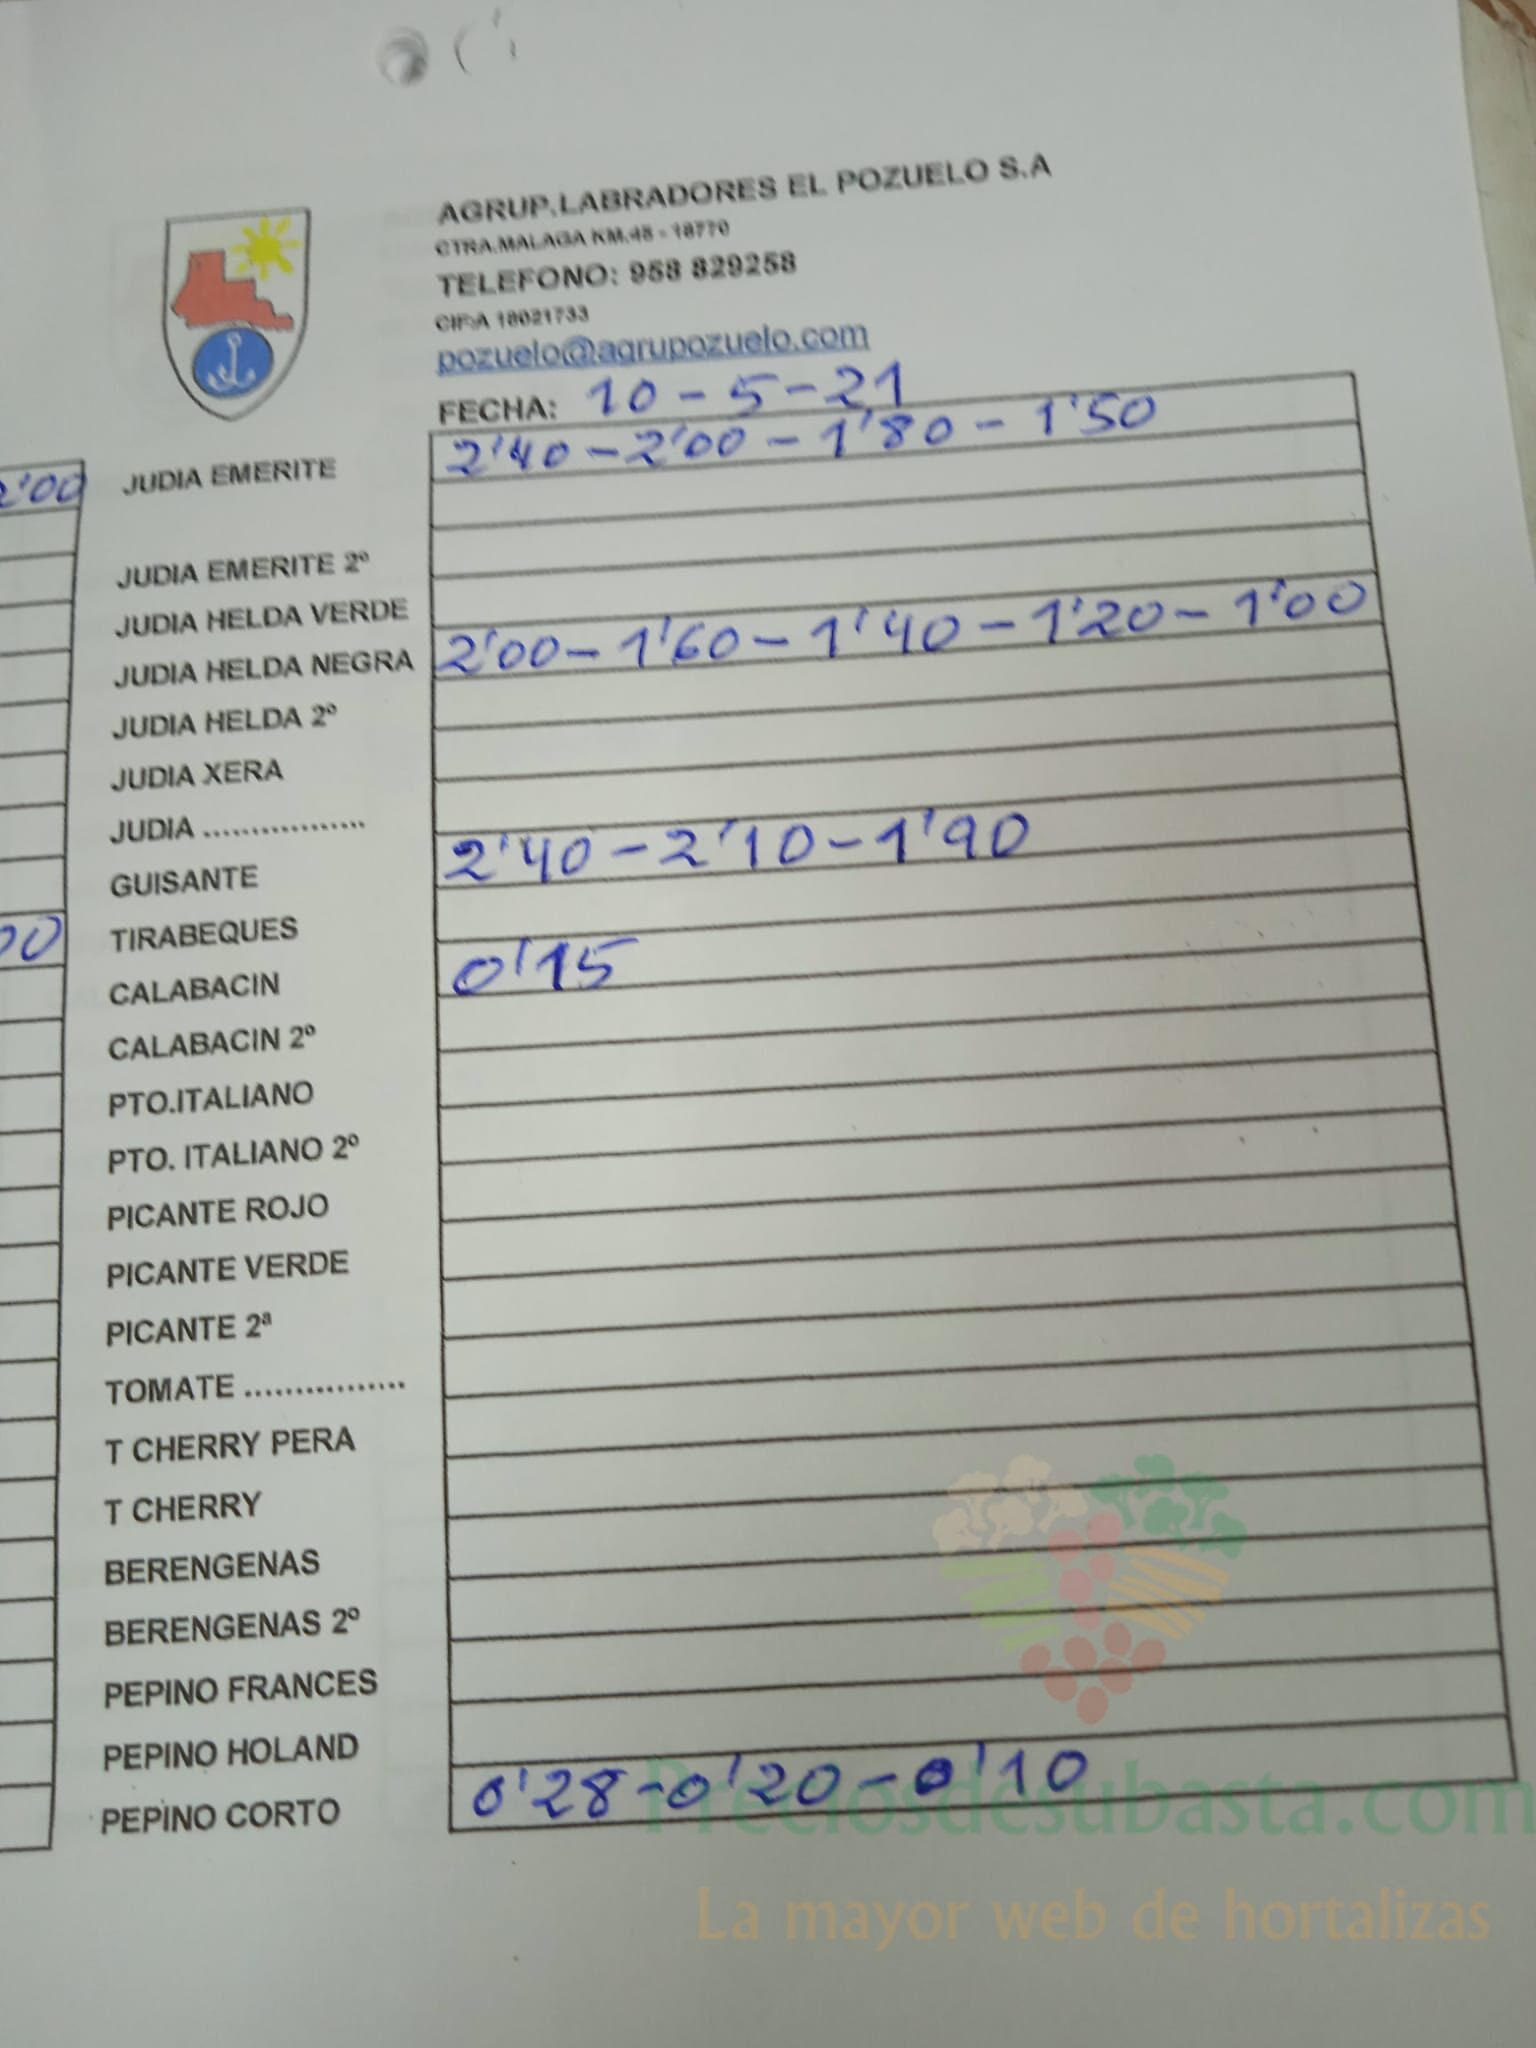 AGRUP.LABRADORES EL POZUELO S.A
CTRA.MALAGA KM.45 - 18770
TELEFONO: 958 829258
CIF:A 18021733
pozuelo@agrupozuelo.com
FECHA: 10-5-21
2'00 JUDIA EMERITE 2'40-2'00-1'80-1'50
JUDIA EMERITE 2º
JUDIA HELDA VERDE
JUDIA HELDA NEGRA 2'00-1'60-1'40-1'20-1'00
JUDIA HELDA 2º
JUDIA XERA
JUDIA .................
GUISANTE 2'40-2'10-1'90
00 TIRABEQUES
CALABACIN 0'15
CALABACIN 2º
PTO.ITALIANO
PTO. ITALIANO 2º
PICANTE ROJO
PICANTE VERDE
PICANTE 2ª
TOMATE ................
T CHERRY PERA
T CHERRY
BERENGENAS
BERENGENAS 2º
PEPINO FRANCES
PEPINO HOLAND
PEPINO CORTO 0'28-0'20-0'10
Preciosdesubasta.com
La mayor web de hortalizas